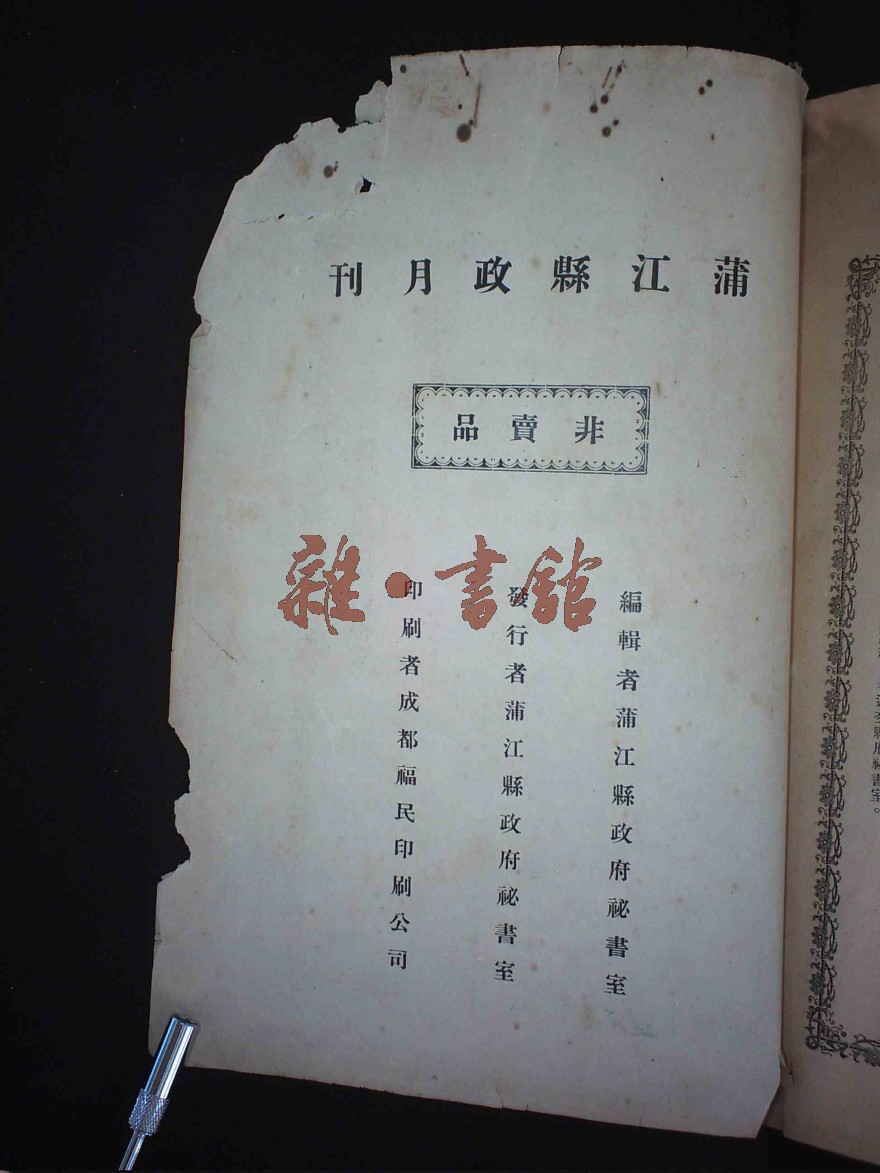 蒲江縣政月刊
非賣品
編輯者蒲江縣政府祕書室
發行者蒲江縣政府祕書室
印刷者成都福民印刷公司
雜·書館
縣府祕書室。